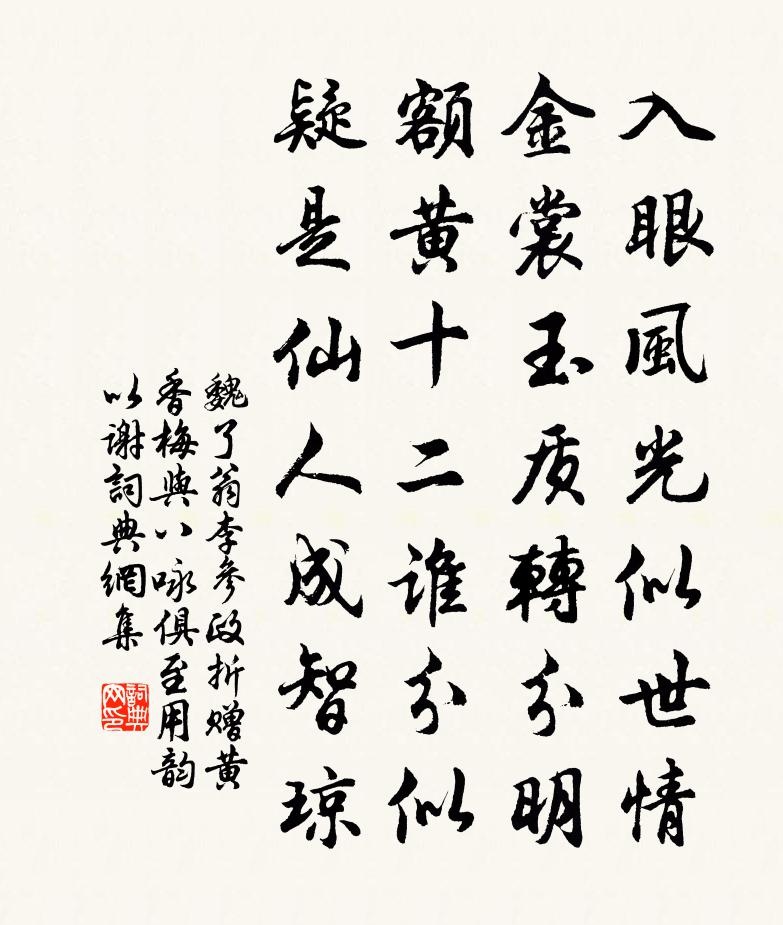 入眼風光似世情
金裳玉质轉分明
額黄十二誰分似
疑是仙人成智琼
魏了翁李參政折赠黄
香梅與八咏俱至用韵
以谢詞典網集
詞典网印